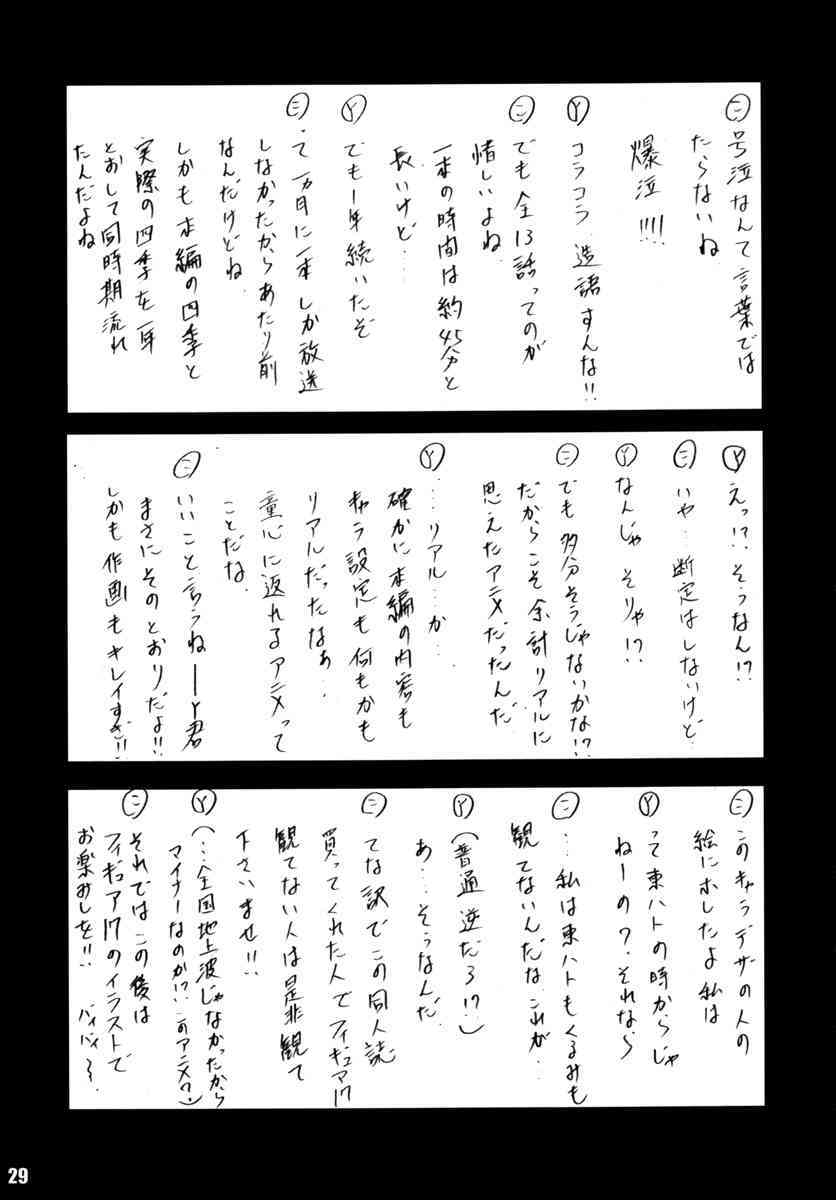 ㋥号泣なんて言葉では
たらないね
爆泣!!!!
Ⓨコラコラ、造語すんな!!
㋥でも全13話ってのが
惜しいよね
一本の時間は約45分と
長いけど…
Ⓨでも1年続いたぞ
㋥って一ヵ月に一本しか放送
しなかったからあたり前
なんだけどね
しかも本編の四季と
実際の四季を一年
とおして同時期流れ
たんだよね
Ⓨえっ!? そうなん!?
㋥いや…断定はしないけど…
Ⓨなんじゃそりゃ!?
㋥でも多分そうじゃないかな!?
だからこそ余計リアルに
思えたアニメだったんだ
Ⓨ…リアル…か
確かに本編の内容も
キャラ設定も何もかも
リアルだったなぁ…
童心に返れるアニメって
ことだな
㋥いいこと言うねーY君
まさにそのとおりだよ!!
しかも作画もキレイすぎ!!
㋥このキャラデザの人の
絵にホレたよ私は
Ⓨって東ハトの時からじゃ
ねーの?それなら
㋥…私は東ハトもくるみも
観てないんだな、これが…
Ⓨ(普通逆だろ!?)
あ…そうなんだ
㋥てな訳でこの同人誌
買ってくれた人でフィギュア17
観てない人は是非観て
下さいませ!!
Ⓨ(…全国地上波じゃなかったから
マイナーなのか!?このアニメ?)
㋥それではこの後は
フィギュア17のイラストで
お楽みしを!! バイバイ〜
29